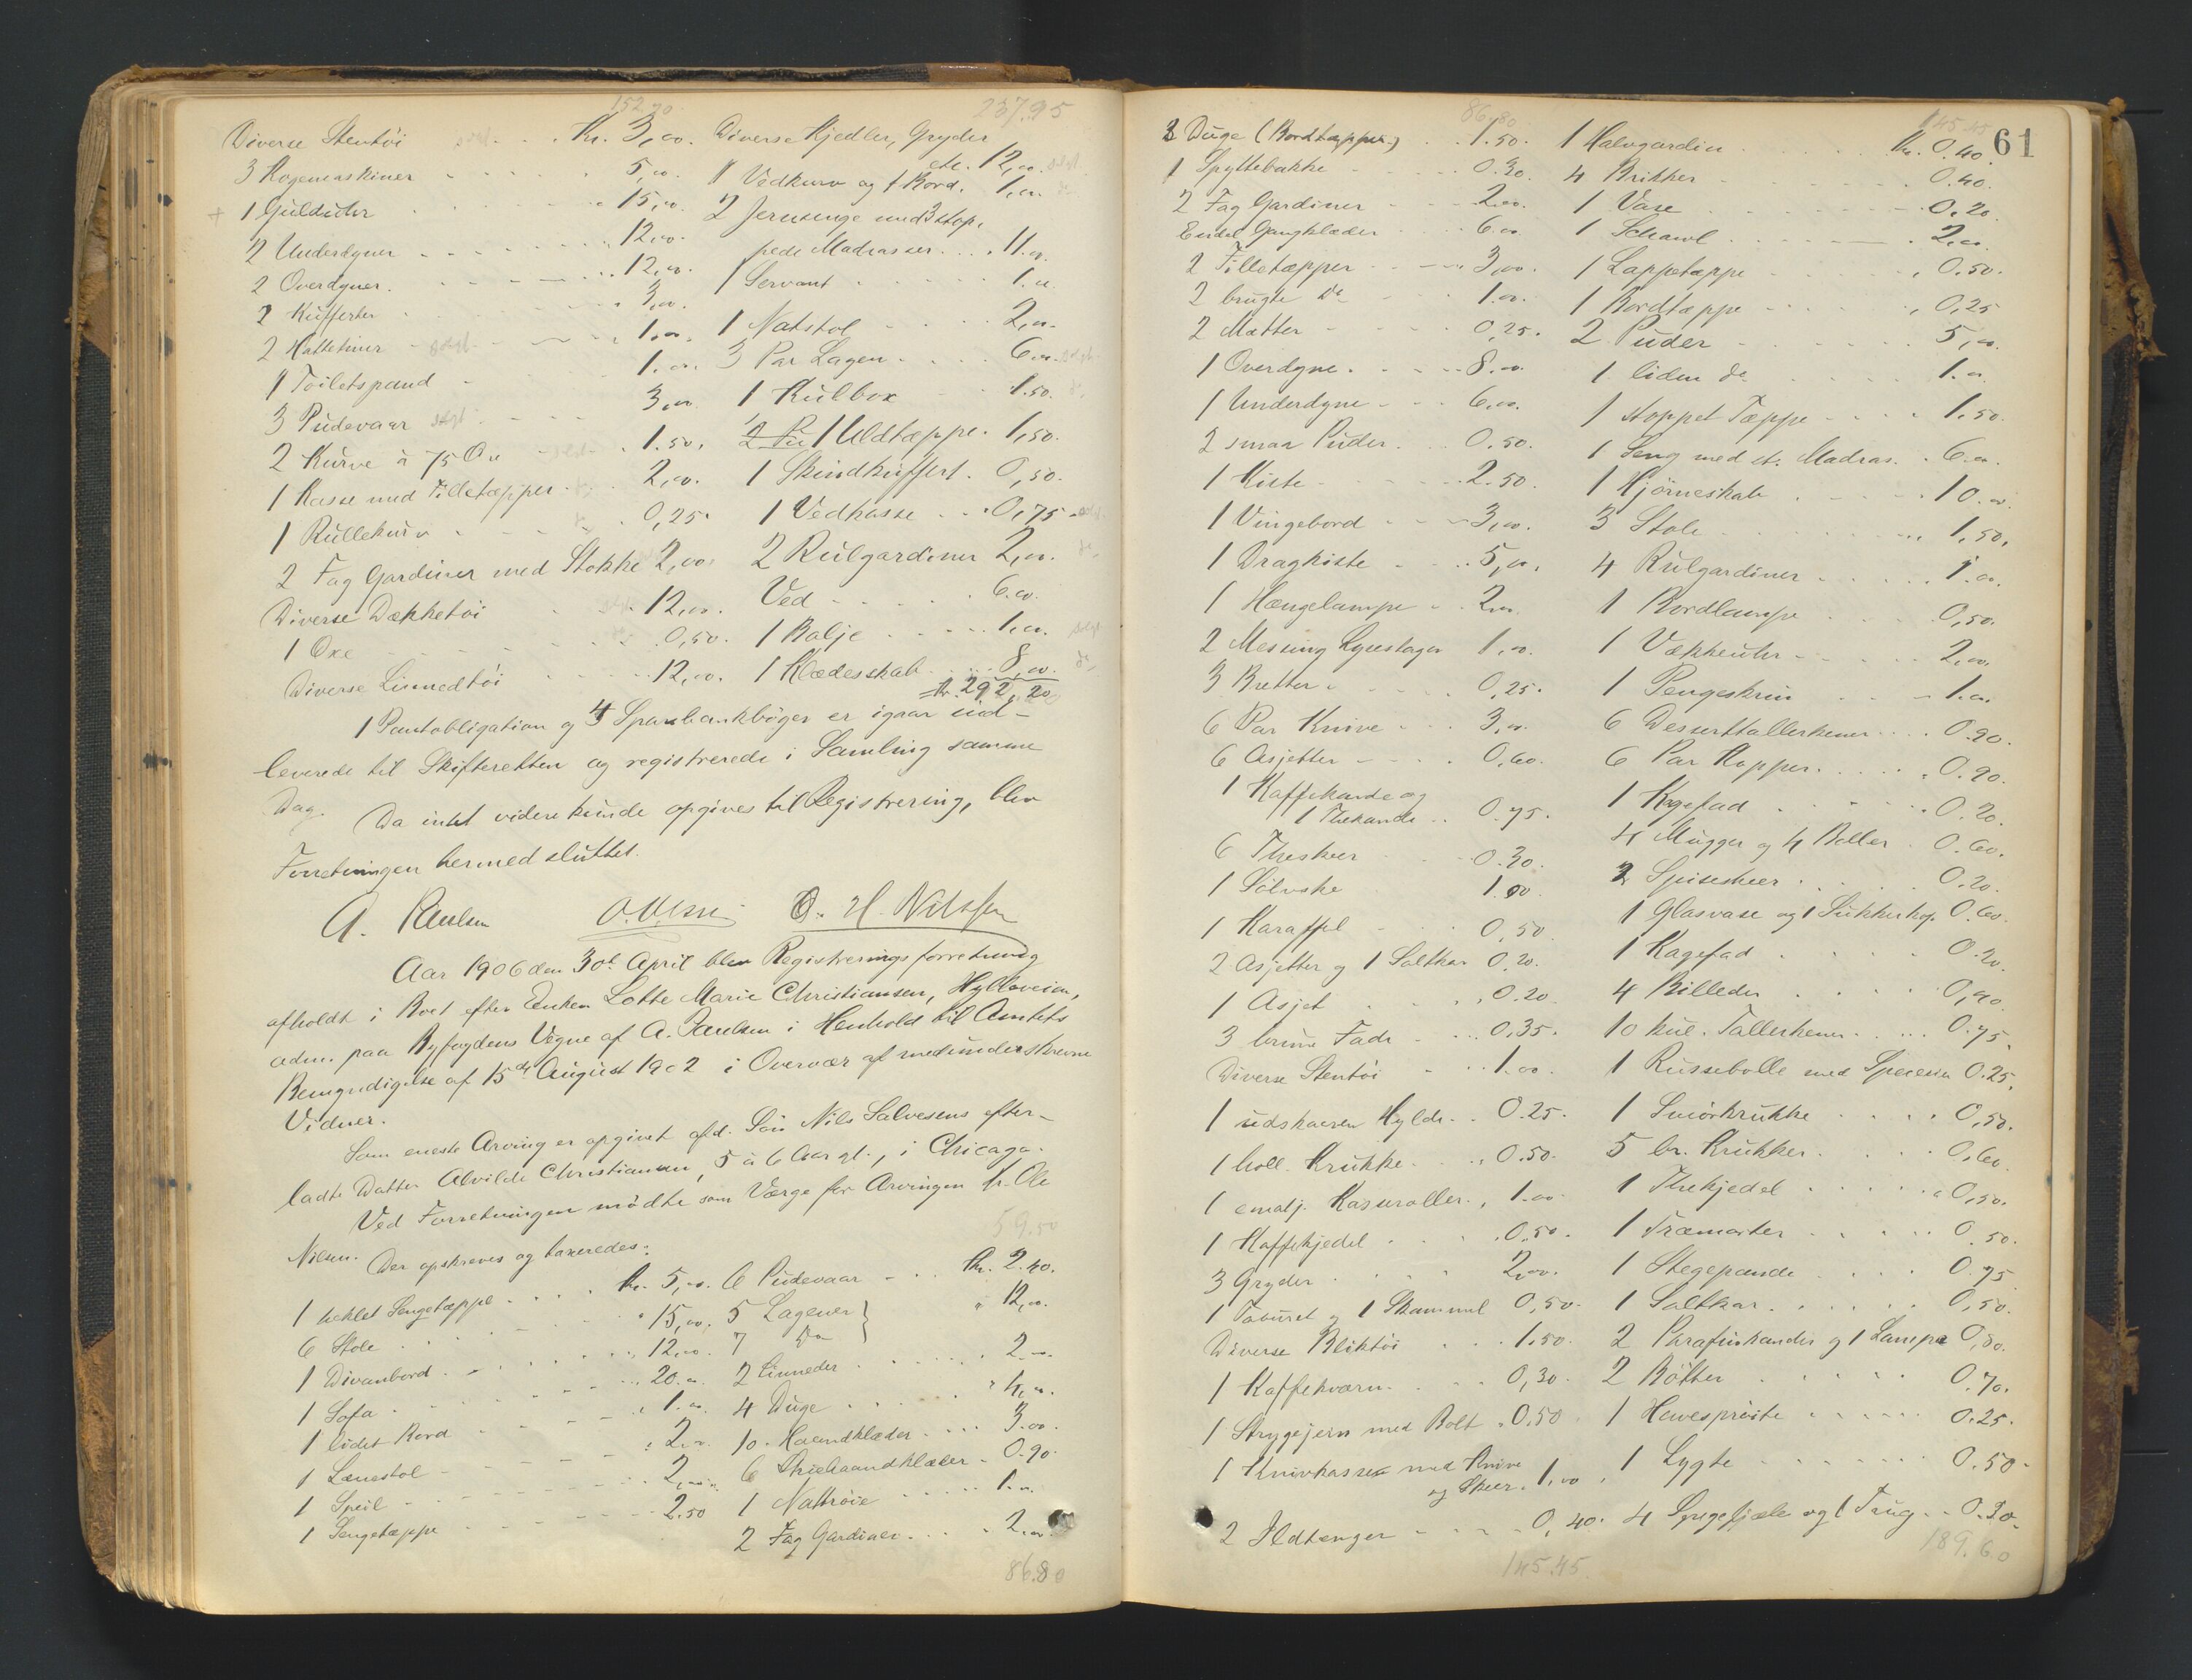 152.70
237.95
Diverse Stentöi . . Kr. 3,00.
3 Kogemaskiner 5,00.
1 Gulduhr 15,00.
2 Underdyner 12,00.
2 Overdyner. 12,00.
2 Kufferter 3,00.
2 Hattetiner 1,00.
1 Toiletspand 1,00.
3 Pudevaar 3,00
2 Kurve à 75 Øre 1.50.
1 Kasse med Filletæpper 2,00.
1 Rullekurv 0,25.
2 Fag Gardiner med Stokke 2,00.
Diverse Dækketöi 12,00.
1 Øxe 0,50.
Diverse Linnedtöi 12,00.
Diverse Kjedler, Gryder
etc. 12,00.
1 Vedkurv og 1 Bord. 1,00.
2 Jernsenge med 3 stop-
pede Madrasser. 11.00.
1 Servant 1.00
1 Natstol 2,00.
3 Par Lagen 6.00.
1 Kulbox 1.50.
2 Pu 1 Uldtæppe. 1,50.
1 Skindkuffert. 0,50.
1 Vedkasse 0,75
2 Rulgardiner 2,00.
Ved 6.00.
1 Balje 1,00.
1 Klædesskab 8,00.
Kr. 292,20
1 Pantobligation og 4 Sparebankbøger er igaar ind-
leverede til Skifteretten og registrerede i Samling samme
Dag.
Da intet videre kunde opgives til Registrering, blev
Forretningen hermed sluttet.
A. Paulsen O. H. Nilssen
Aar 1906 den 30t April blev Registreringsforretning
afholdt i Boet efter Enken Lotte Marie Christiansen, Hylloveien,
adm. paa Byfogdens Vegne af A. Paulsen i Henhold til Amtets
Bemyndigelse af 15de August 1902 i Overvær af medunderskrevne
Vidner.
Som eneste Arving er opgivet afd. Søn Nils Salvesens efter-
ladte Datter Alvilde Christiansen, 5 à 6 Aar gl., i Chicago.
Ved Forretningen mödte som Værge for Arvingen hr. Ole
Nilsen.
59.50
Der opskreves og taxeredes:
1 heklet Sengetæppe Kr. 5,00.
6 Stole 15,00.
1 Divanbord 12,00.
1 Sofa 20.00
1 lidet Bord 1.00
1 Lænestol 2,00
1 Speil 2,00
1 Sengetæppe 2.50
6 Pudevaar Kr. 2.40.
5 Lagener
7 Do 12,00.
2 Linneder 2
4 Duge 4,00.
10 Haandklæder 3.00.
6 Haandklæder 0.90.
1 Nattröie 1.00
2 Fag Gardiner 2.00
86.80
86.80
145.45
61
2 Duge (Bordtæpper) 1.50.
1 Spyttebakke 0.30.
2 Fag Gardiner 2.00.
Endel Gangklæder 6.00
2 Filletæpper 3,00.
2 brugte do 1.00.
2 Matter 0,25.
1 Overdyne 8.00.
1 Underdyne 6.00.
2 smaa Puder 0.50.
1 Kiste 2.50.
1 Vingebord 3,00.
1 Dragkiste 5,00.
1 Hængelampe 2.00.
2 Messing Lysestager 1,00.
3 Bretter 0,25.
6 Par Knive 3,00.
6 Asjetter 0,60.
1 Kaffekande og
1 Thekande 0.75.
6 Theskeer 0.30.
1 Sölvske 1.00.
1 Karaffel 0,50
2 Asjetter og 1 Saltkar 0.20.
1 Asjet 0.20
3 brune Fade 0,35.
Diverse Stentöi 1.00.
1 udskaaren Hylde 0.25.
1 holl. Krukke 0.50.
1 emalj. Kasseroller. 1.00.
1 Kaffekjedel 0,50.
3 Gryder 2,00.
1 Taburet og 1 Skammel 0,50.
Diverse Bliktöi 1.50.
1 Kaffekværn 0,30.
1 Strygejern med Bolt 0.50
1 Knivkasse med Knive
og Skeer. 1,00.
2 Ildtænger 0,40.
145.45.
1 Halvgardin Kr. 0.40.
4 Brikker 0.40.
1 Vase 0.20.
1 Schawl 2,00.
1 Lappetæppe 0.50.
1 Bordtæppe 0,25
2 Puder 5,00.
1 liden do 1.00
1 stoppet Tæppe 1,50.
1 Seng med st. Madras. 6.00.
1 Hjörneskab 10.00.
3 Stole 1,50.
4 Rulgardiner 1.00.
1 Bordlampe 0,50.
1 Vækkeuhr 2,00.
1 Pengeskrin 1.00.
6 Desserttallerkener 0.90.
6 Par Kopper. 0.90.
1 Kagefad 0.20.
4 Mugger og 4 Boller 0.60.
2 Spiseskeer 0.20.
1 Glasvase og 1 Sukkerkop. 0.60.
1 Kagefad 0.20.
4 Billeder 0,40.
10 Tallerkener 0.75.
1 Russebolle med Speceri 0.25.
1 Smörkrukke 0,50.
5 br. Krukker 0,60.
1 Thekjedel 0,50.
1 Træmorter 0.50.
1 Stegepande 0.75
1 Saltkar. 0,50.
2 Parafinkander og 1 Lampe 0,80.
2 Bötter 0.70.
1 Havespröite 0.25.
1 Lygte 0.50.
4 Spegefjæle og 1 Trug 0.20.
189.60